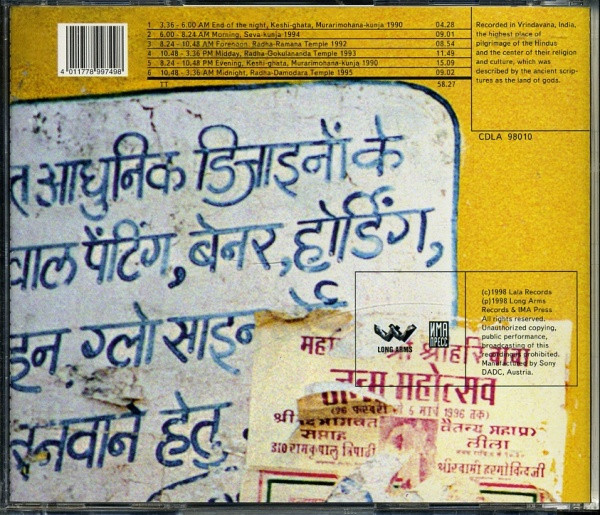 1 3.36 - 6.00 AM End of the night, Keshi-ghata, Murarimohana-kunja 1990 04.28
2 6.00 - 8.24 AM Morning, Seva-kunja 1994 09.01
3 8.24 - 10.48 AM Forenoon, Radha-Ramana Temple 1992 08.54
4 10.48 - 3.36 PM Midday, Radha-Gokulananda Temple 1993 11.49
5 8.24 - 10.48 PM Evening, Keshi-ghata, Murarimohana-kunja 1990 15.09
6 10.48 - 3.36 AM Midnight, Radha-Damodara Temple 1995 09.02
TT 58.27
4 011778 997498
Recorded in Vrindavana, India,
the highest place of
pilgrimage of the Hindus
and the center of their religion
and culture, which was
described by the ancient scrip-
tures as the land of gods.
CDLA 98010
त आधुनिक डिजाइनों के
वाल पेंटिंग, बेनर, होर्डिंग,
इन, ग्लो साइन
बनवाने हेतु
(c)1998 Lala Records
(p)1998 Long Arms
Records & IMA Press
All rights reserved.
Unauthorized copying,
public performance,
broadcasting of this
recordings prohibited.
Manufactured by Sony
DADC, Austria.
LONG ARMS
ИМА
ПРЕСС
महा श्री श्रीहरि
जन्म महोत्सव
(26 फरवरी से 6 मार्च 1996 तक)
सप्ताह
लीला
डा० रामकृपालु त्रिपाठी
श्रीस्वामी हरगोविन्दजी